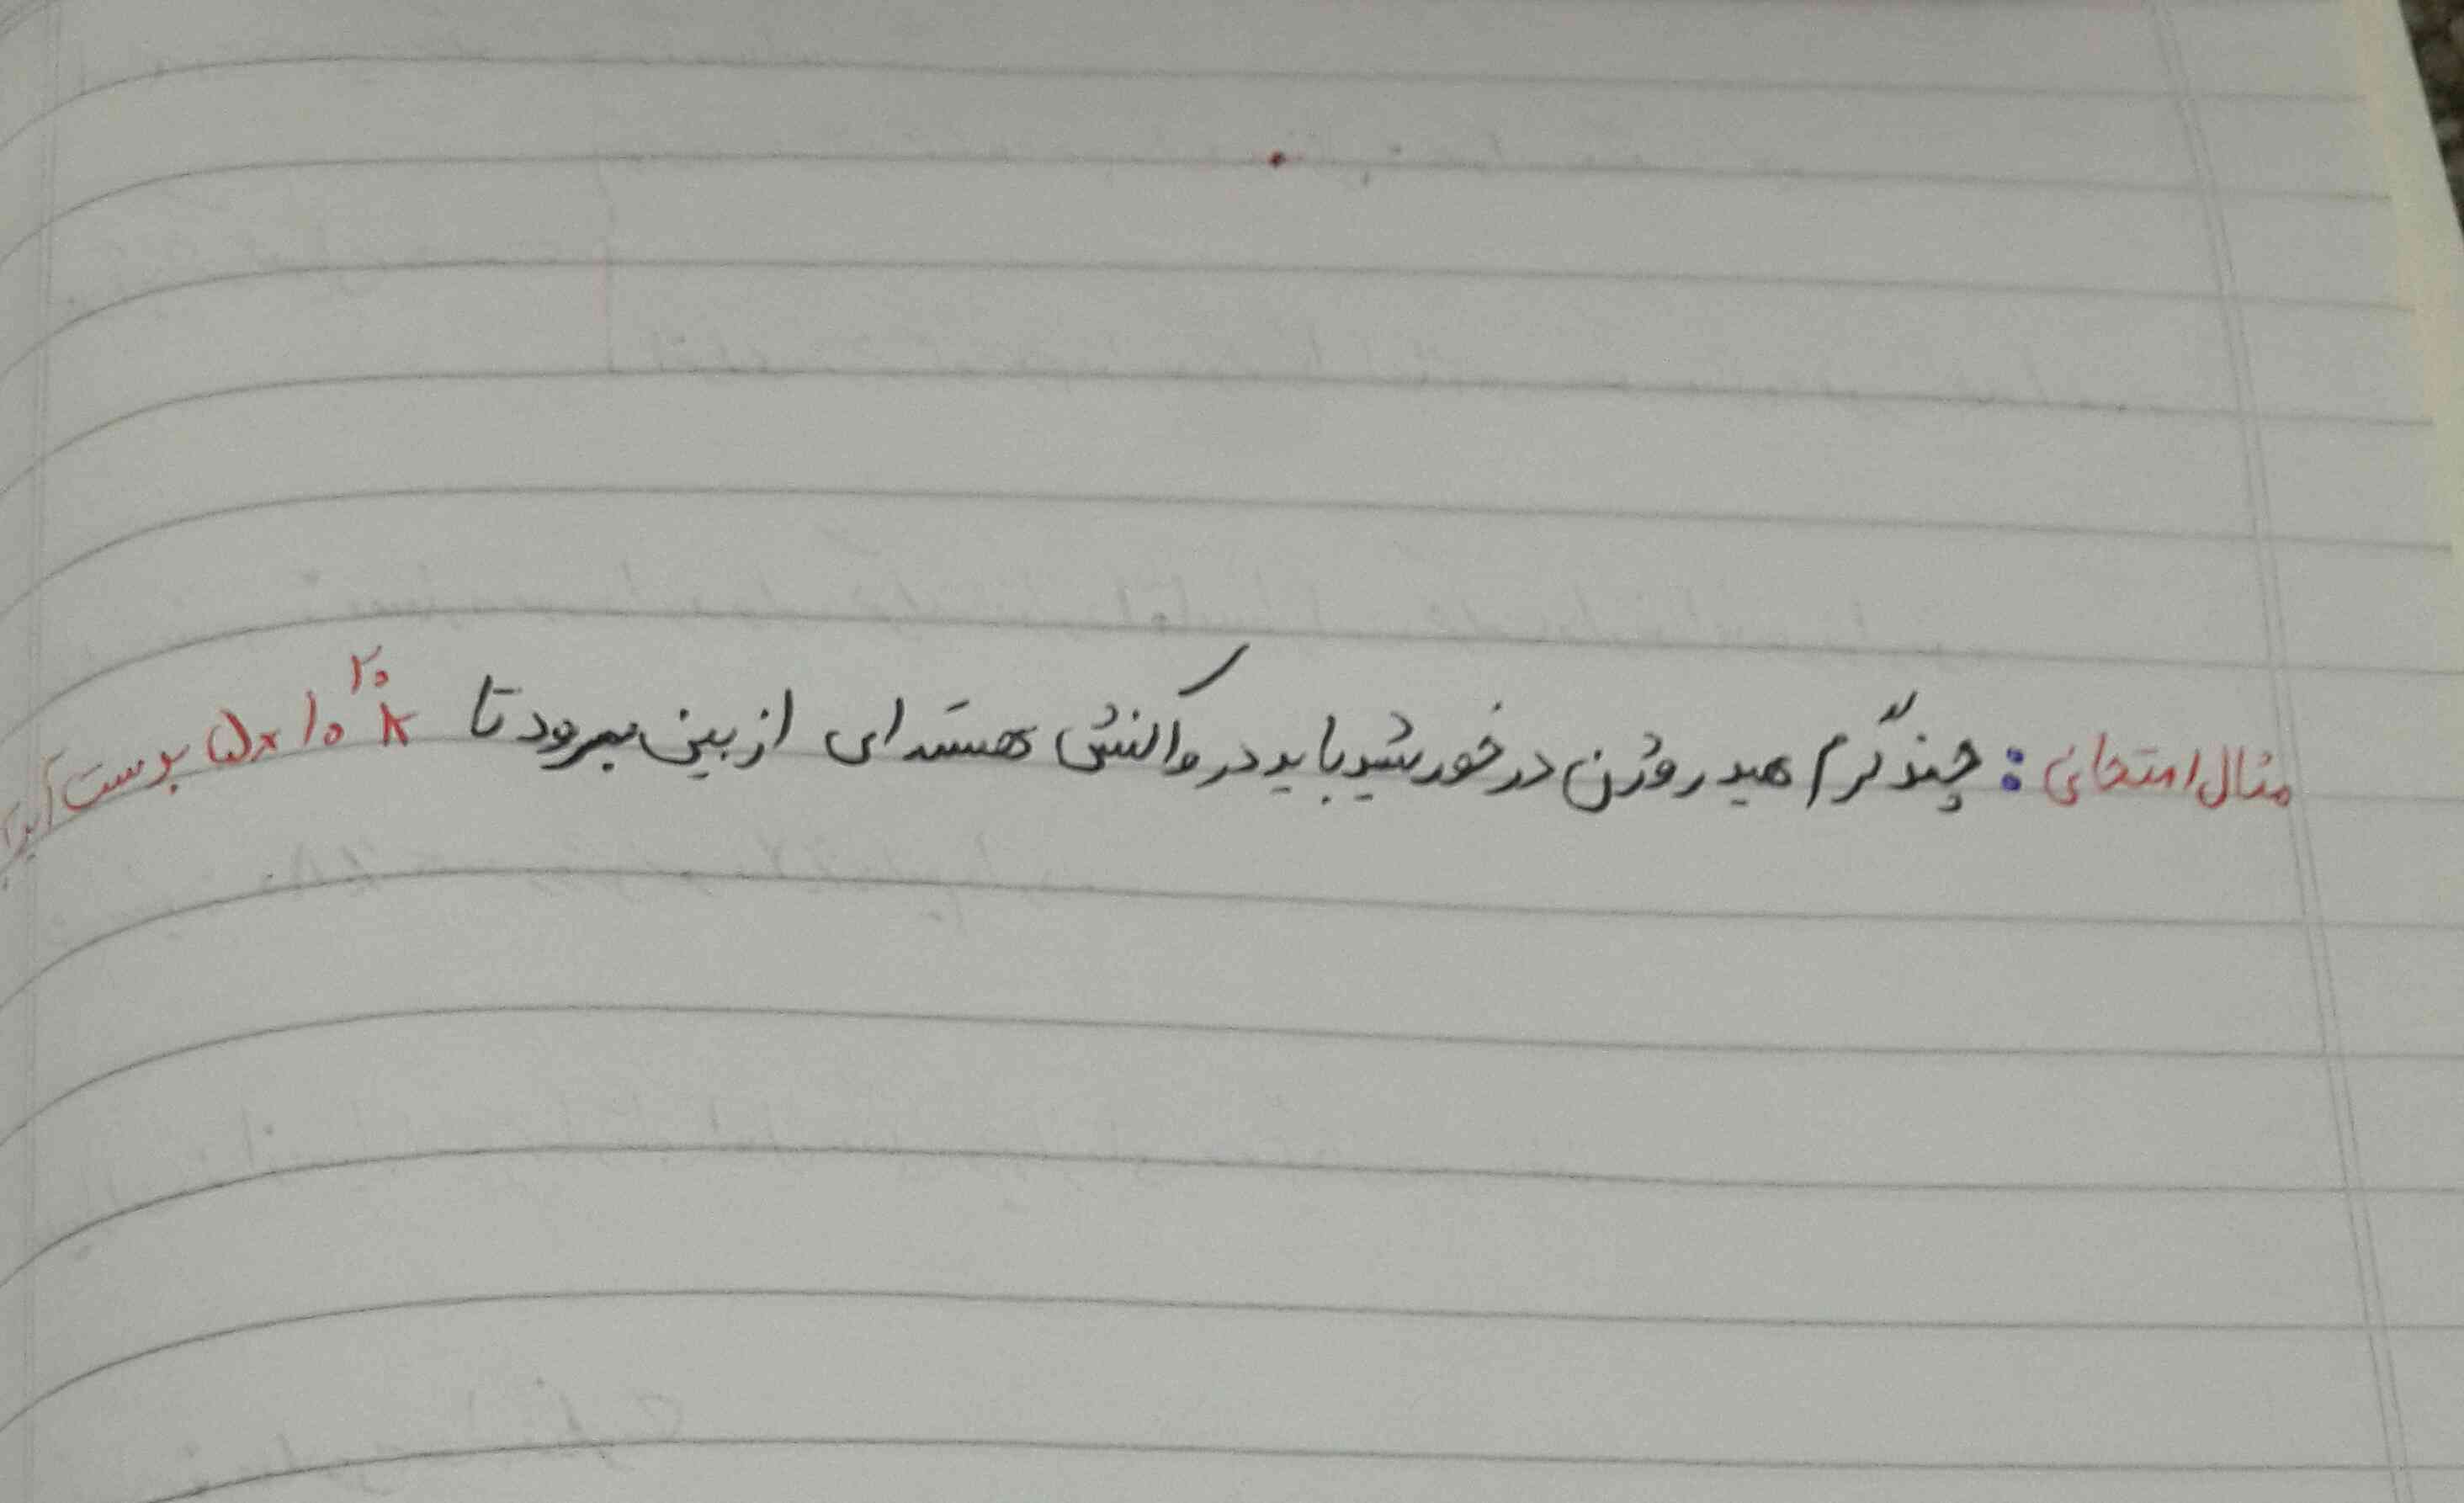 مثال امتحانی : چند گرم هیدروژن در خورشید باید در واکنش هسته ای از بین برود تا ۵×۱۰^۲۰ k بدست آید